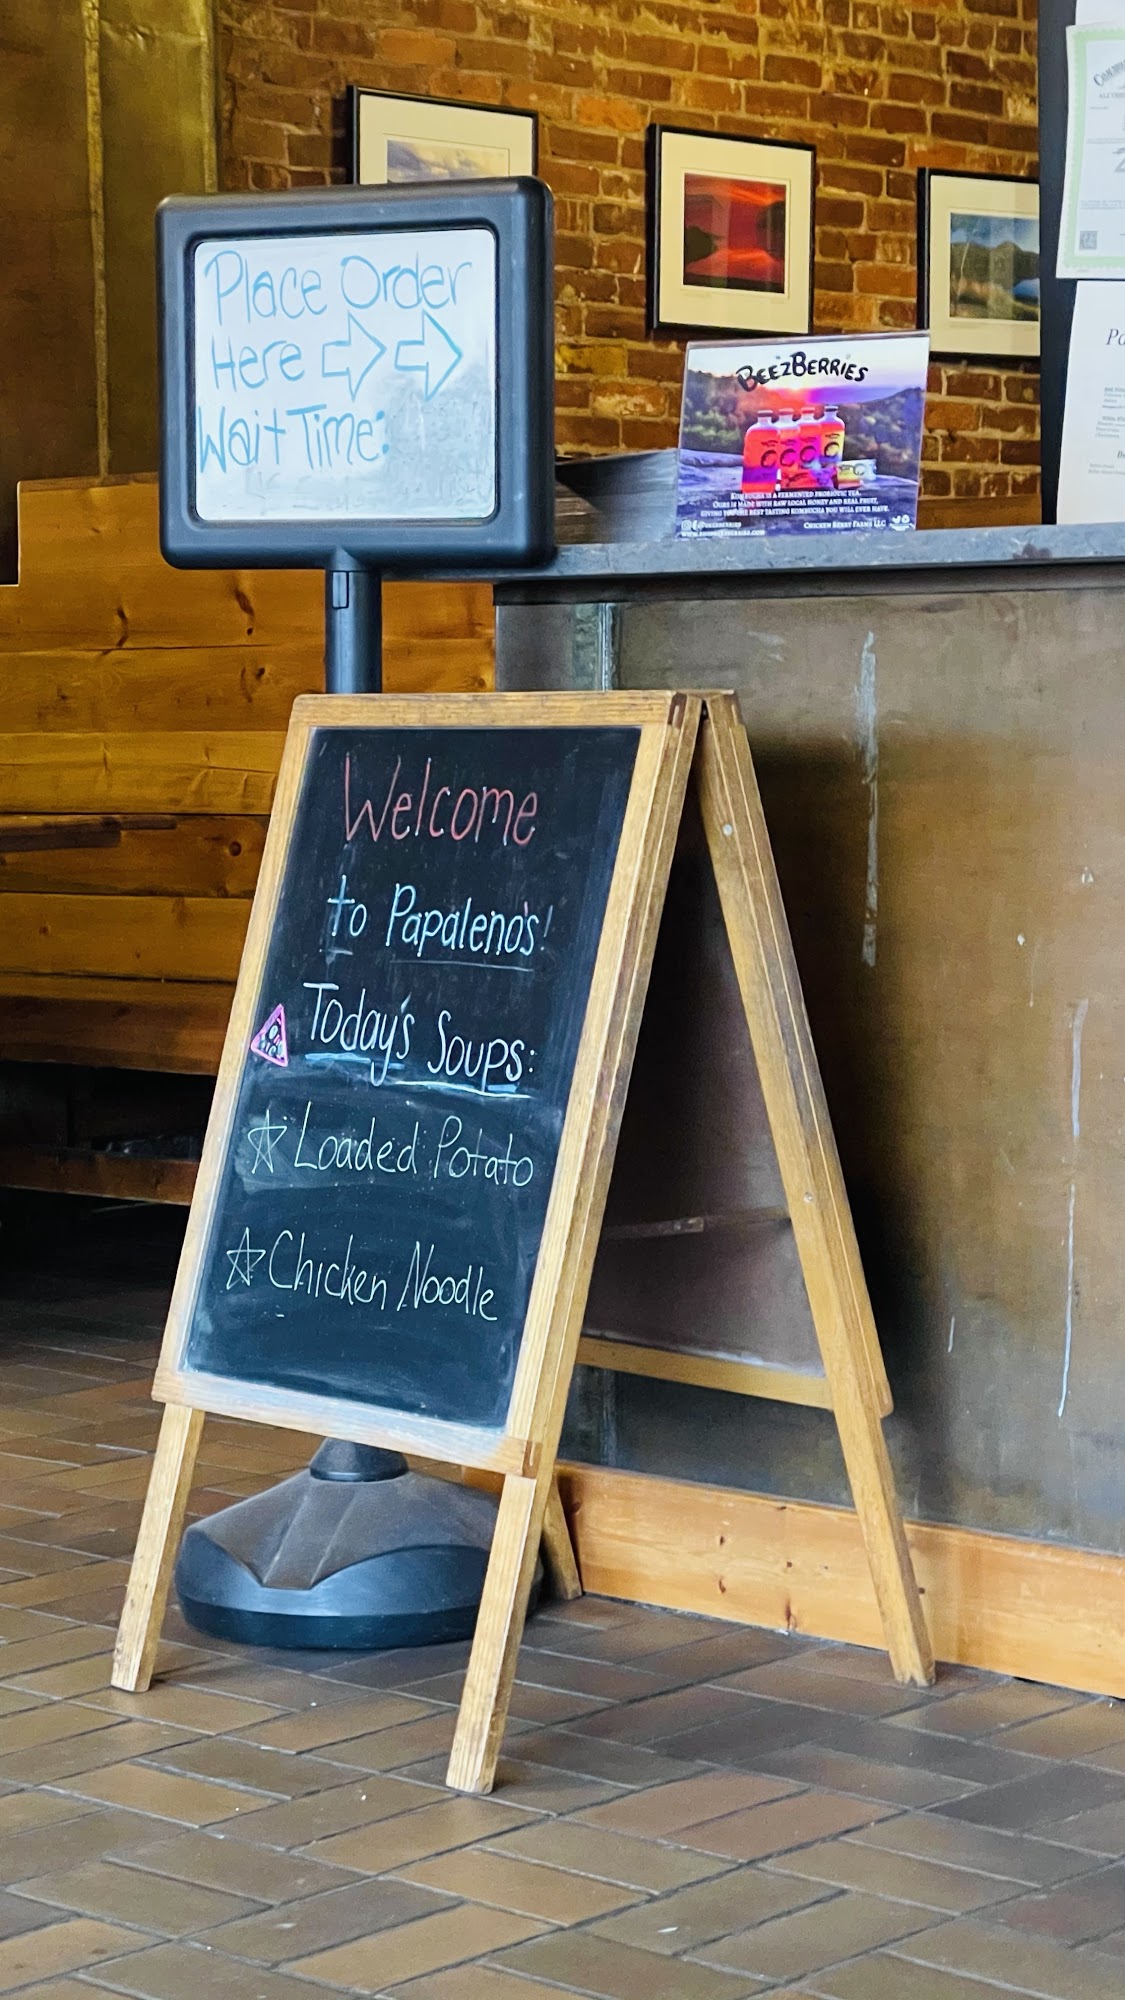 Place Order
Here
Wait Time:
BEEZBERRIES
KOMBUCHA IS A FERMENTED PROBIOTIC TEA.
OURS IS MADE WITH RAW LOCAL HONEY AND REAL FRUIT,
GIVING YOU THE BEST TASTING KOMBUCHA YOU WILL EVER HAVE.
CHICKEN BERRY FARMS LLC
Welcome
to Papaleno's!
Today's Soups:
Loaded Potato
Chicken Noodle